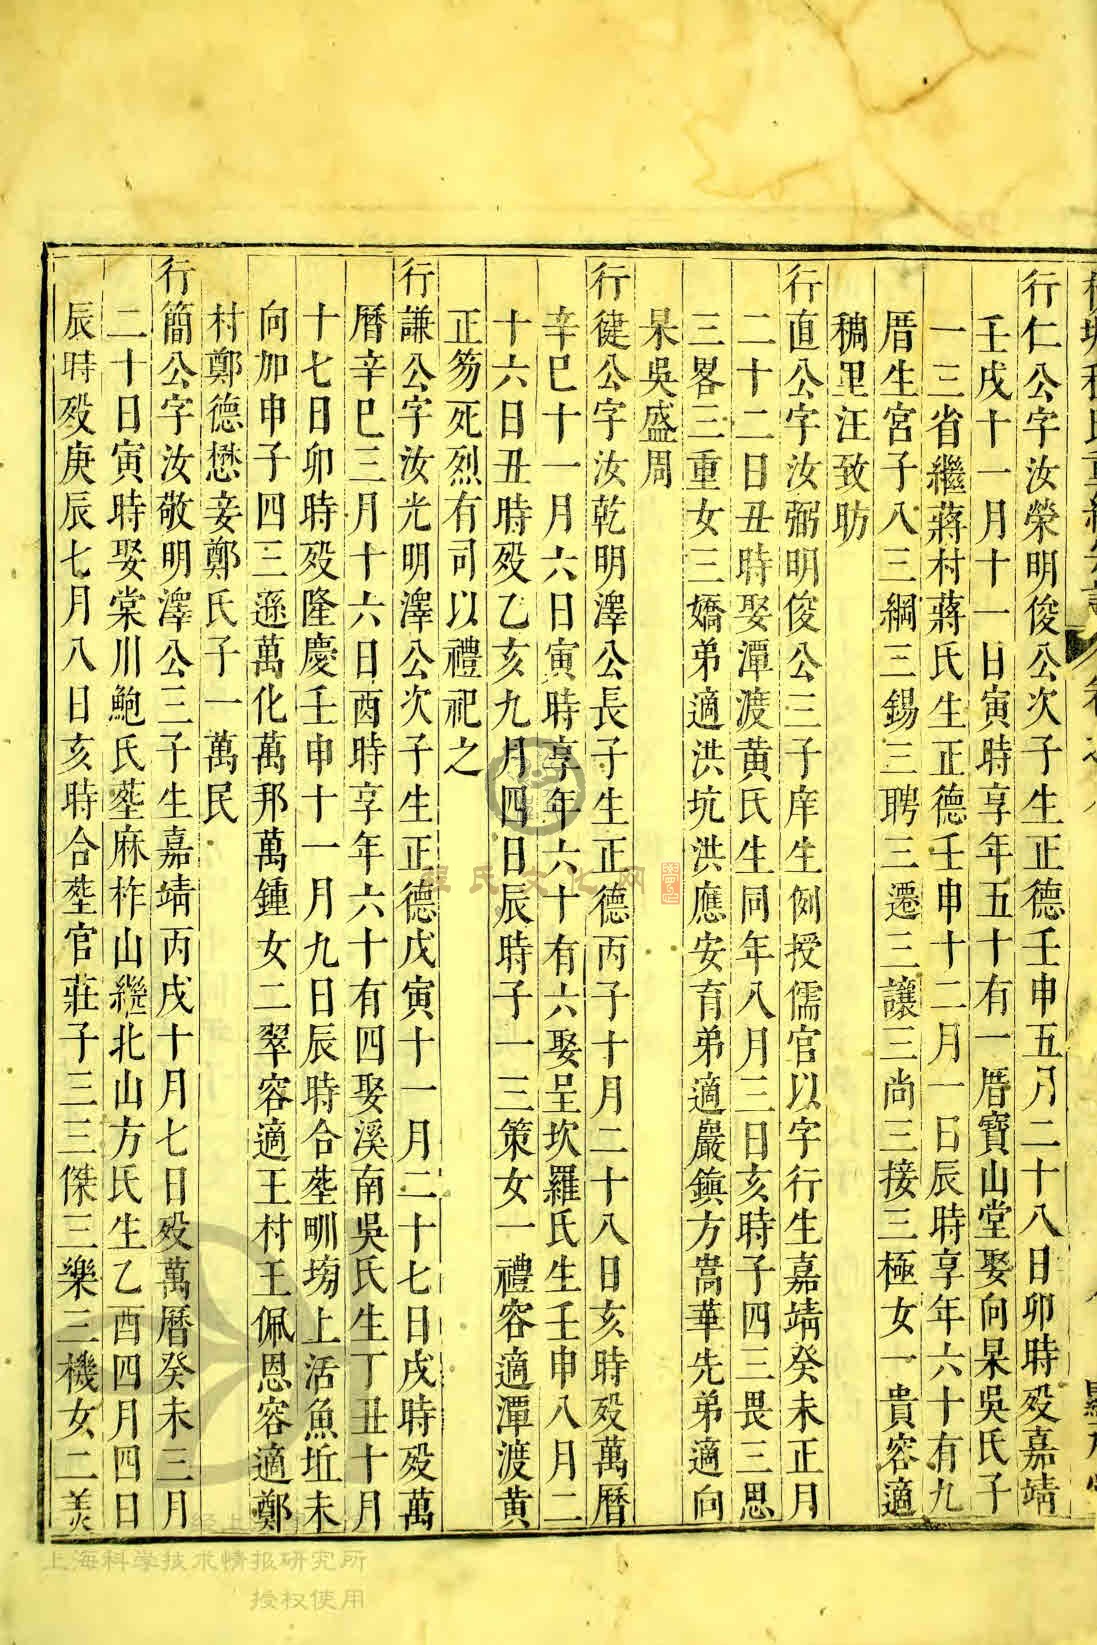 行仁公字汝榮明俊公次子生正德壬申五月二十八日卯時歿嘉靖
壬戌十一月十一日寅時享年五十有一厝寶山堂娶向杲吳氏子
一三省繼蔣村蔣氏生正德壬申十二月一日辰時享年六十有九
厝生宮子八三綱三錫三聘三遷三讓三尚三接三極女一貴容適
稠里汪致昉
行直公字汝弼明俊公三子庠生例授儒官以字行生嘉靖癸未正月
二十二日丑時娶潭渡黄氏生同年八月三日亥時子四三畏三思
三畧三重女三嬌弟適洪坑洪應安育弟適嚴鎮方嵩華先弟適向
杲吳盛周
行健公字汝乾明澤公長子生正德丙子十月二十八日亥時歿萬曆
辛巳十一月六日寅時享年六十有六娶呈坎羅氏生壬申八月二
十六日丑時歿乙亥九月四日辰時子一三策女一禮容適潭渡黄
正芴死烈有司以禮祀之
行謙公字汝光明澤公次子生正德戊寅十一月二十七日戌時歿萬
曆辛巳三月十六日酉時享年六十有四娶溪南吳氏生丁丑十月
十七日卯時歿隆慶壬申十一月九日辰時合塟甽塝上活魚坵未
向加申子四三遜萬化萬邦萬鍾女二翠容適王村王佩恩容適鄭
村鄭德懋妾鄭氏子一萬民
行簡公字汝敬明澤公三子生嘉靖丙戌十月七日歿萬曆癸未三月
二十日寅時娶棠川鮑氏塟麻柞山繼北山方氏生乙酉四月四日
辰時歿庚辰七月八日亥時合塟官莊子三三傑三樂三機女二羙
氏文化网
上海科学技术情报研究所
授权使用